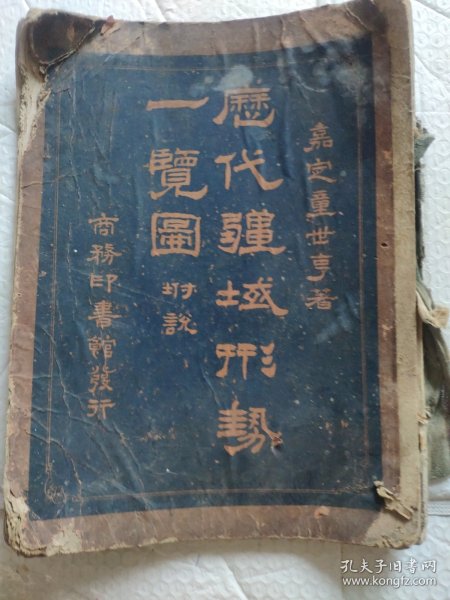 嘉定童世亨著
歷代疆域形勢
一覽圖附說
商務印書館發行
孔夫子旧书网
www.kongfz.com